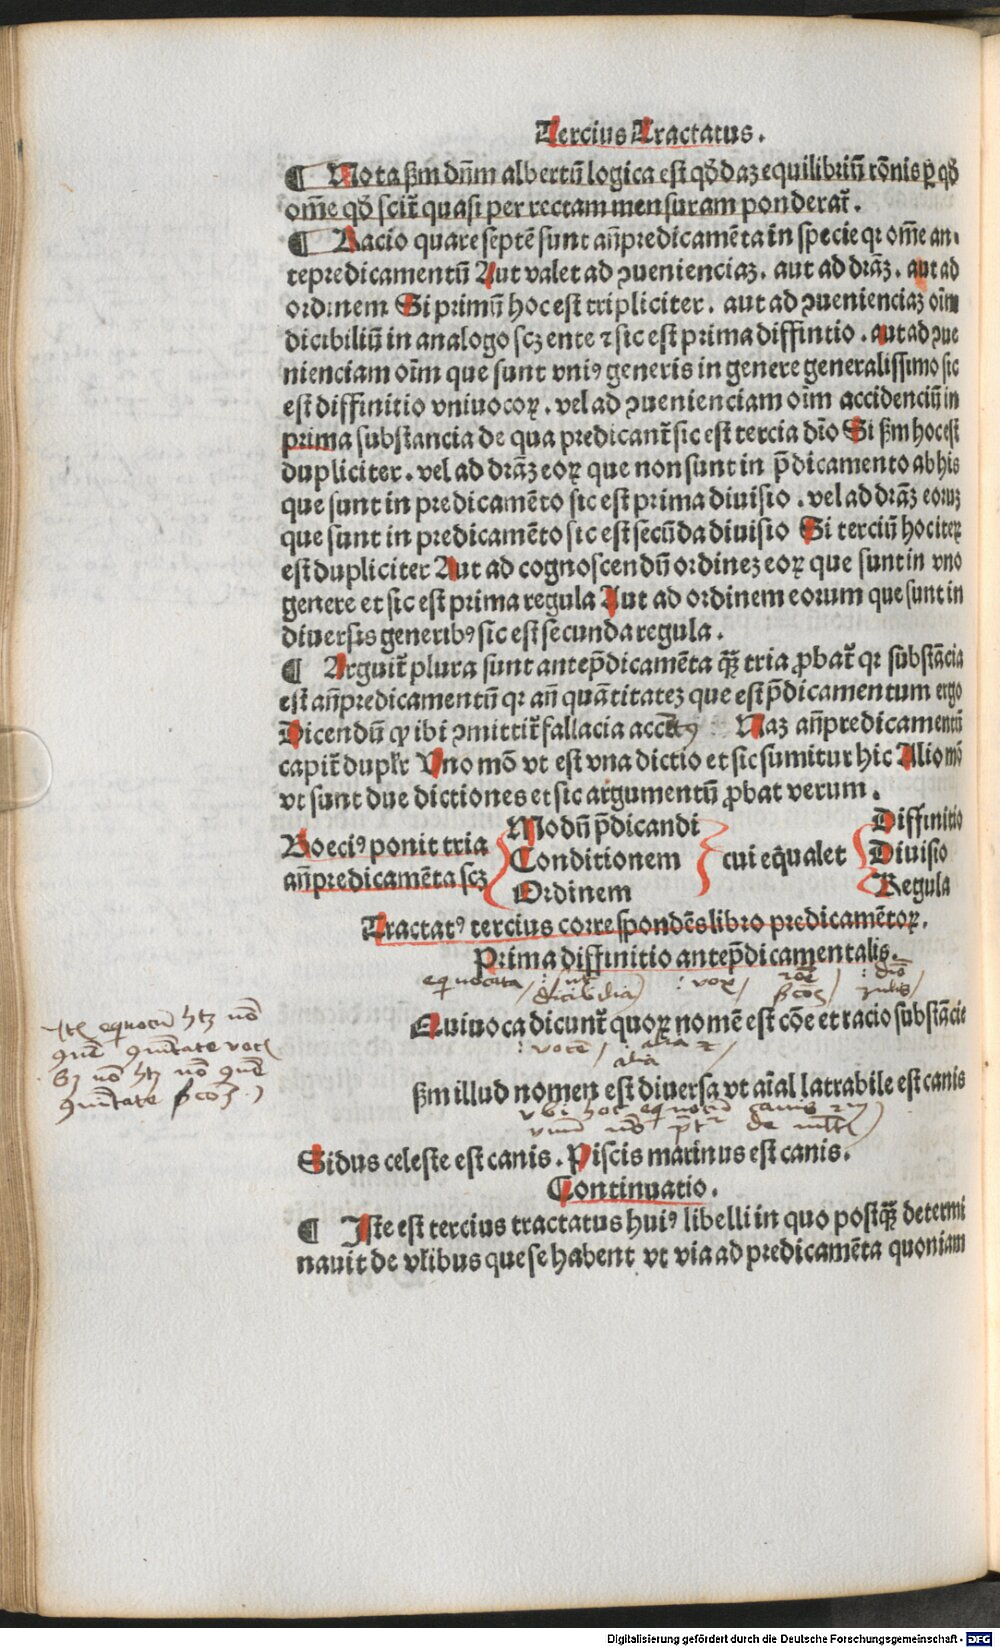 Tercius Tractatus.
¶ Nota ßm dn̄m albertū logica est qd̄daz equilibriū rōnis ꝑ qd̄
om̄e qd̄ scit᷑ quasi per rectam mensuram ponderat᷑.
¶ Racio quare septē sunt an̄predicamēta in specie qꝛ om̄e an-
tepredicamentū Aut valet ad ꝯuenienciaz. aut ad dr̄āz. aut ad
ordinem Si primū hoc est tripliciter. aut ad ꝯuenienciaz oīm
dicibiliū in analogo scꝫ ente ⁊ sic est prima diffintio. aut ad ꝯue
nienciam oīm que sunt vniꝰ generis in genere generalissimo sic
est diffinitio vniuocoꝝ. vel ad ꝯuenienciam oīm accidenciū in
prima substancia de qua predicant᷑ sic est tercia dīo Si ßm hoc est
dupliciter. vel ad dr̄āz eoꝝ que non sunt in p̄dicamento ab his
que sunt in predicamēto sic est prima diuisio. vel ad dr̄āz eorūz
que sunt in predicamēto sic est secūda diuisio Si terciū hoc iteꝝ
est dupliciter Aut ad cognoscendū ordinez eoꝝ que sunt in vno
genere et sic est prima regula Aut ad ordinem eorum que sunt in
diuersis generibꝰ sic est secunda regula.
¶ Arguit᷑ plura sunt antep̄dicamēta qꝫ̄ tria ꝓbat᷑ qꝛ substācia
est an̄predicamentū qꝛ an̄ quātitatez que est p̄dicamentum ergo
Dicendū ꝙ ibi ꝯmittit᷑ fallacia accētꝰ Naz an̄predicamentū
capit᷑ duplr̄ Uno mō vt est vna dictio et sic sumitur hic Alio mō
vt sunt due dictiones et sic argumentū ꝓbat verum.
Boeciꝰ ponit tria
an̄predicamēta scꝫ
Modū p̄dicandi
Conditionem
Ordinem
cui eq̄ualet
Diffinitio
Diuisio
Regula
Tractatꝰ tercius correspondēs libro predicamētoꝝ.
Prima diffinitio antep̄dicamentalis.
equocata dicibilia voꝝ
Quiuoca dicunt᷑ quoꝝ nomē est cōe et racio substācie
vocē alia
alia
ßm illud nomen est diuersa vt aīal latrabile est canis
Sidus celeste est canis. Piscis marinus est canis.
Continuatio.
¶ Iste est tercius tractatus huiꝰ libelli in quo postqꝫ̄ determi
nauit de vlibus que se habent vt via ad predicamēta quoniam
Digitalisierung gefördert durch die Deutsche Forschungsgemeinschaft - DFG